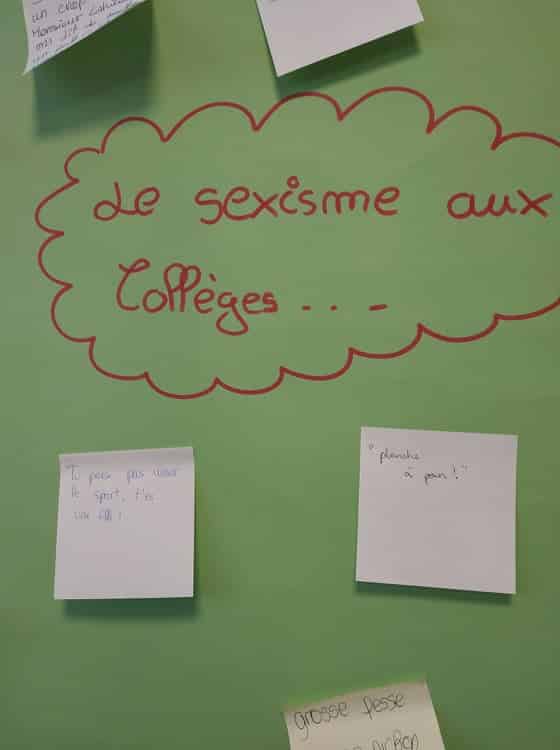 un crop
Monsieur
m'a dit de
Le sexisme aux
Collèges . . . -
Tu peux pas
le sport, t'es
une fille !
"planche
à pain !"
grosse fesse